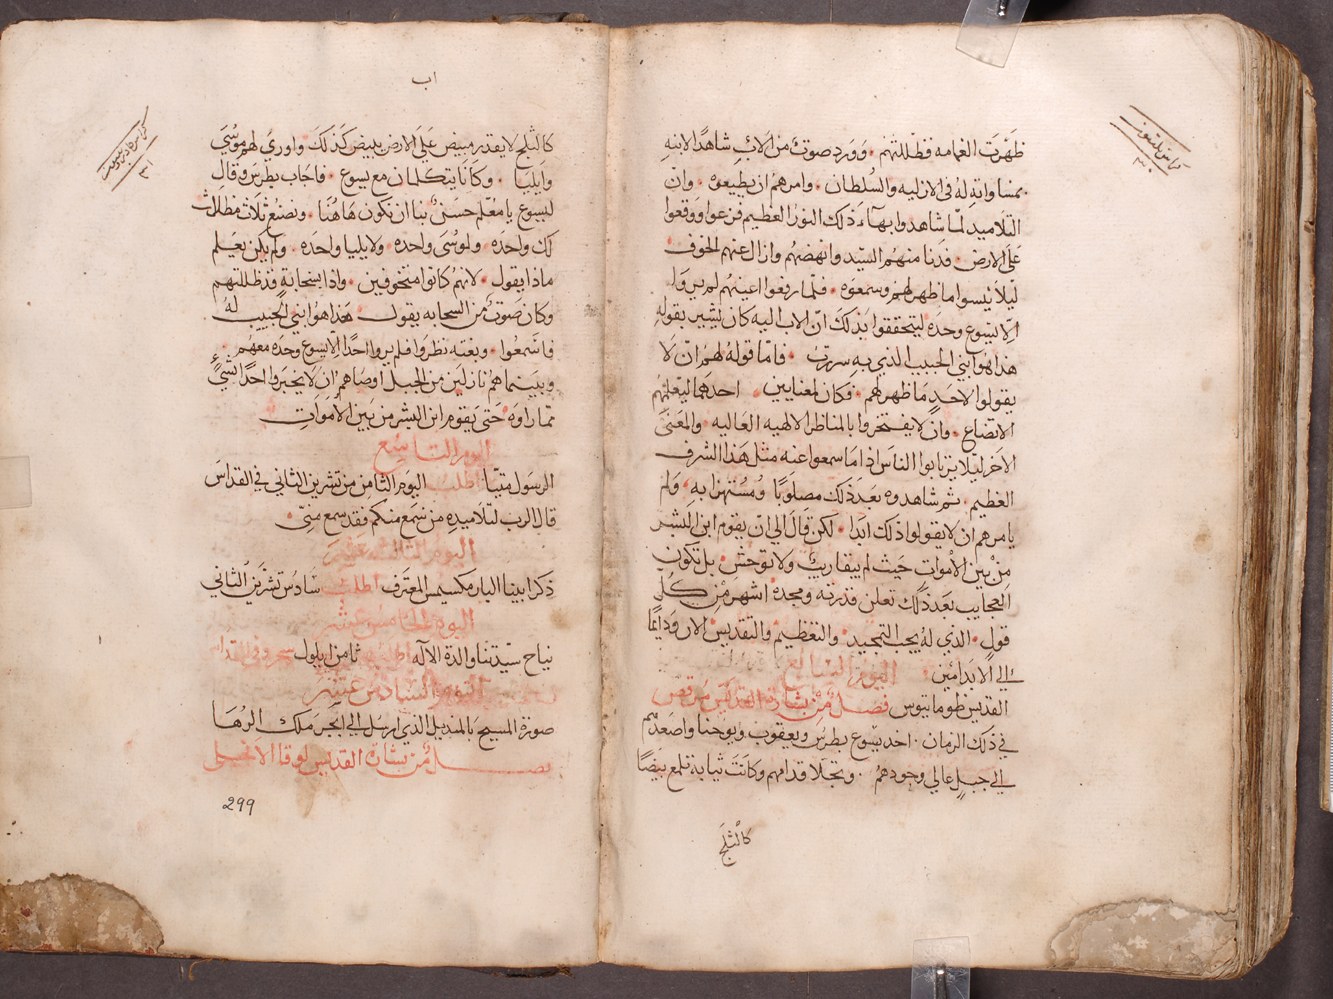 كراس ثلثون
٣٠
ظهرت الغمامه فظللتهم . وورد صوت من الاب شاهدا لابنه
بمساواته له في الازليه والسلطان . وامرهم ان يطيعوه . وان
التلاميد لما شاهدوا بهآء ذلك النور العظيم فزعوا ووقعوا
على الارض . فدنا منهم السيد وانهضهم وازال عنهم الخوف
ليلا ينسوا ما ظهر لهم وسمعوه . فلما رفعوا اعينهم لم يروا
الا يسوع وحده ليتحققوا بذلك ان الاب اليه كان يشير بقوله
هذا هو ابني الحبيب الذي به سررت . فاما قوله لهم ان لا
يقولوا لاحد ما ظهر لهم . فكان لمعنايين . احدهما ليعلمهم
الاتضاع . وان لا يفتخروا بالمناظر الالهيه العاليه . والمعنى
الاخر ليلا يرتابوا الناس اذا ما سمعوا عنه مثل هذا الشرف
العظيم . ثم شاهدوه بعد ذلك مصلوبا ومستهزا به . ولم
يامرهم ان لا يقولوا ذلك ابدا . لكن قال الي ان يقوم ابن البشر
من بين الاموات حيث لم يبقا ريب ولا توحش . بل تكون
العجايب بعد ذلك تعلن قدرته ومجده اشهر من كل
قول . الذي له يجب التمجيد والتعظيم والتقديس الان ودايما
الي الابد امين . اليوم السابع
القديس طوماتيوس فصل من بشارة القديس مرقص
في ذلك الزمان . اخد يسوع بطرس ويعقوب ويوحنا واصعدهم
الي جبل عالي وحودهم . وتجلا قدامهم وكانت ثيابه تلمع بيضا
كالثلج
اب
٣١
كالثلج لا يقدر مبيض على الارض يبيض كذلك . واوري لهم موسي
وايليا . وكانا يتكلمان مع يسوع . فاجاب بطرس وقال
ليسوع يا معلم حسن بنا ان نكون هاهنا . ونصنع ثلاث مظلات
لك واحده . ولموسى واحده . ولايليا واحده . ولم يكن يعلم
ماذا يقول . لانهم كانوا متخوفين . واذا سحابة قد ظللتهم
وكان صوت من السحابه يقول . هذا هو ابني الحبيب له
فاسمعوا . وبغته نظروا فلم يروا احدا الا يسوع وحده معهم .
وبينما هم نازلين من الجبل اوصاهم ان لا يخبروا احدا بشيء
مما راوه حتى يقوم ابن البشر من بين الاموات
اليوم التاسع
الرسول متيا اطلب اليوم الثامن من تشرين الثاني في القداس
قال الرب لتلاميده من سمع منكم فقد سمع مني
اليوم الثالث عشر
ذكر ابينا البار مكسيمس المعترف اطلب سادس تشرين الثاني
اليوم الخامس عشر
نياح سيدتنا والدة الاله اطلب ثامن ايلول سحر وفي القداس
اليوم السادس عشر
صورة المسيح بالمنديل الذي ارسل الي ابجر ملك الرها
فصل من بشارة القديس لوقا الانجيلي
299